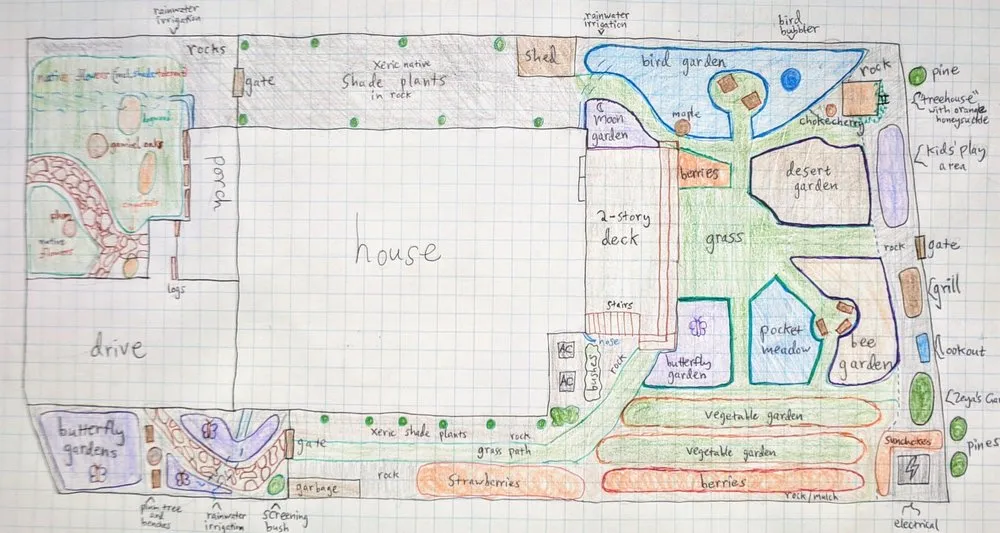 rainwater
irrigation
rainwater
irrigation
bird
bubbler
rocks
gate
Xeric native
Shade plants
in rock
shed
bird garden
rock
pine
"treehouse"
with orange
honeysuckle
native flowers
dogwood
gambel oaks
moon
garden
maple
chokecherry
kids' play
area
porch
berries
desert
garden
plum
native
flowers
house
2-story
deck
grass
rock
gate
logs
grill
drive
stairs
hose
AC
AC
bushes
rock
butterfly
garden
pocket
meadow
bee
garden
lookout
butterfly
gardens
gate
xeric shade plants
rock
grass path
vegetable garden
vegetable garden
Sunchokes
pines
rock
garbage
Strawberries
berries
rock/mulch
plum tree
and
benches
rainwater
irrigation
screening
bush
electrical